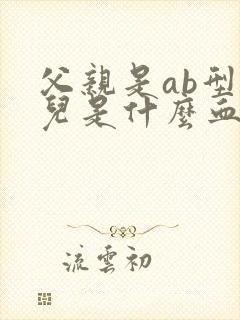 父親是ab型
兒是什麼血
流雲初